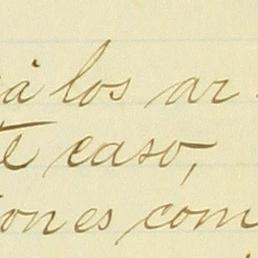 à los ar
te caso,
iones com